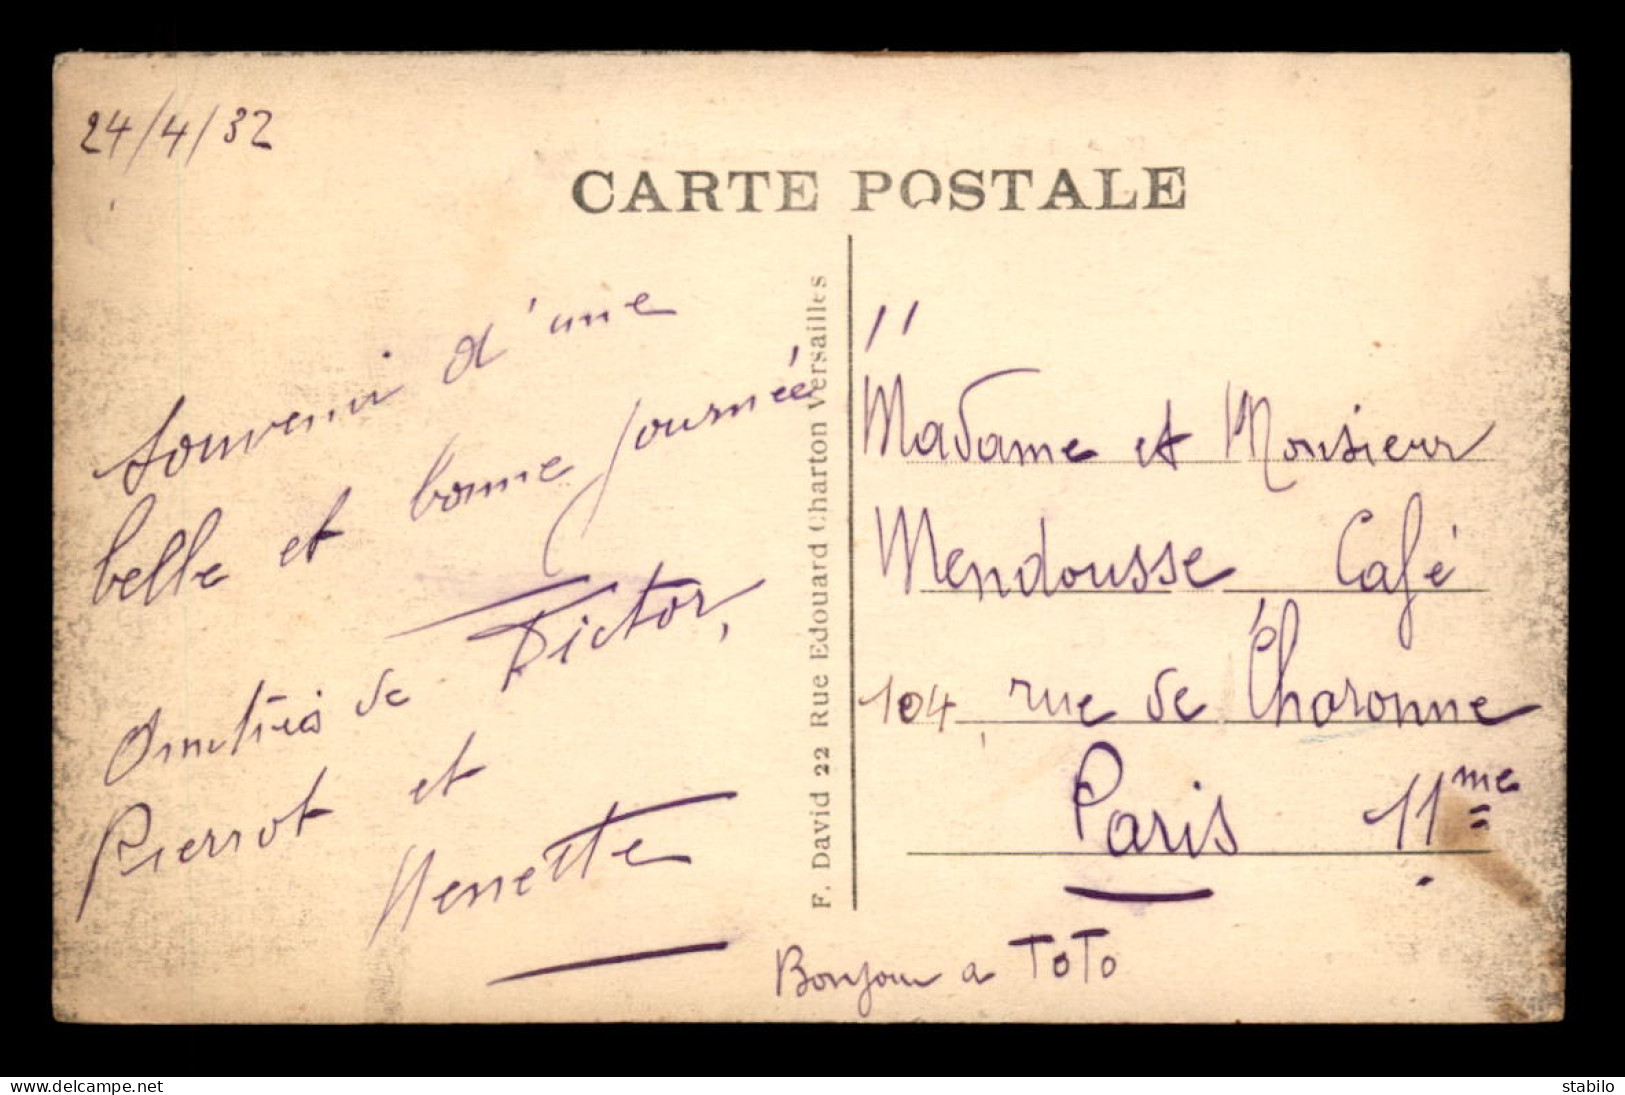 24/4/32
CARTE POSTALE
Souvenir d'une
belle et bonne journée
Amitiés de Victor,
Pierrot et
Henette
F. David 22 Rue Edouard Charton Versailles
Madame et Monsieur
Mendousse Café
104, rue de Charonne
Paris 11me
Bonjour a ToTo
www.delcampe.net
stabilo